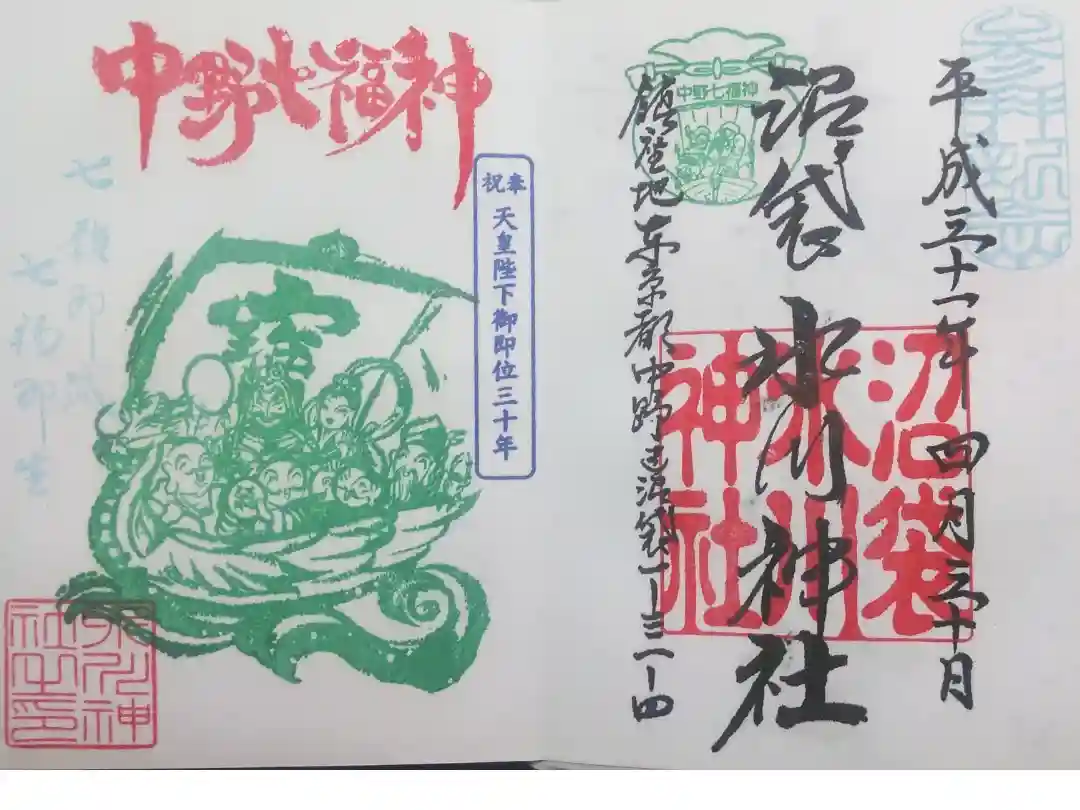 平成三十一年 四月三十日
沼袋 氷川神社
沼袋
氷川
神社
中野七福神
鎮座地東京都中野区沼袋一ー三一ー四
奉祝
天皇陛下御即位三十年
中野七福神
寳
七難即滅
七福即生
氷川神
社之印